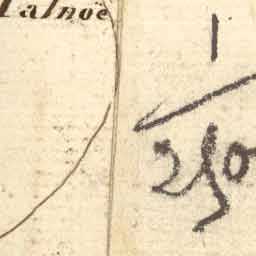 Talnoë
1
250